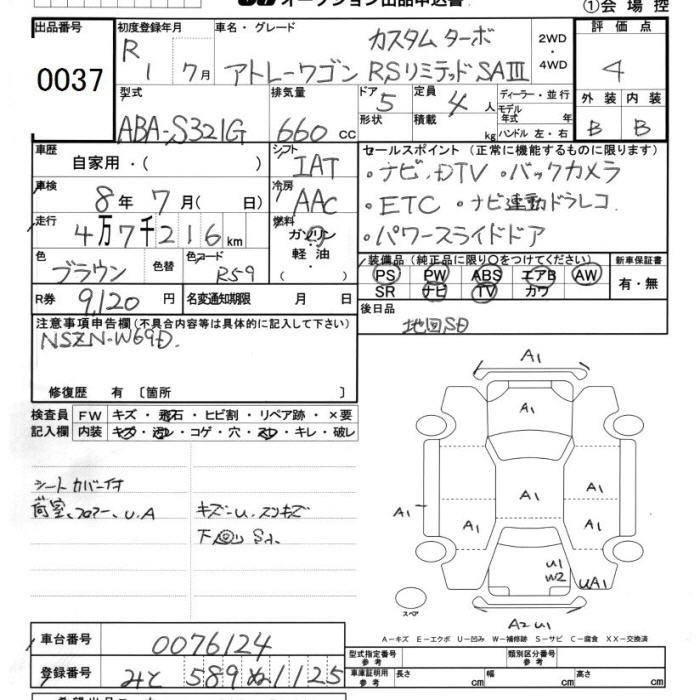 オークション出品申込書
①会場控
出品番号 初度登録年月 車名・グレード 評価点
0037 R1 7月 アトレーワゴン カスタムターボ RSリミテッドSAIII 2WD・4WD 4
型式 排気量 ドア 定員 ディーラー・並行 外装 内装
ABA-S321G 660cc 5 4人 モデル年式 年 B B
形状 積載 kg ハンドル 左・右
車歴 シフト セールスポイント (正常に機能するものに限ります)
自家用・( ) IAT ・ナビ・DTV・バックカメラ
車検 冷房
8年7月( 日) AAC ・ETC・ナビ連動ドラレコ
走行 燃料
4万7千216km ガソリン・軽油・ ・パワースライドドア
色 色替 色コード 装備品(純正品に限り○をつけてください) 新車保証書
ブラウン R59 PS PW ABS エアB AW 有・無
SR ナビ TV カワ
R券 9,120円 名変通知期限 月 日 後日品
地図SD
注意事項申告欄(不具合内容等は具体的に記入して下さい)
NSZN-W69D.
修復歴 有〔箇所 〕
検査員 FW キズ・飛石・ヒビ割・リペア跡・×要
記入欄 内装 キズ・汚レ・コゲ・穴・スレ・キレ・破レ
シートカバー付
荷室、フロアー、U.A キズ-U.スリキズ
下回りSA.
A1
A1
A1
A1 A1 A1 A1
U1
W2 UA1
スペア
A2 U1
A-キズ E-エクボ U-凹み W-補修跡 S-サビ C-腐食 XX-交換済
車台番号 0076124 型式指定番号 参考 類別区分番号 参考
登録番号 みと 589 ぬ 1125 車庫証明用 参考 長さ cm 幅 cm 高さ cm